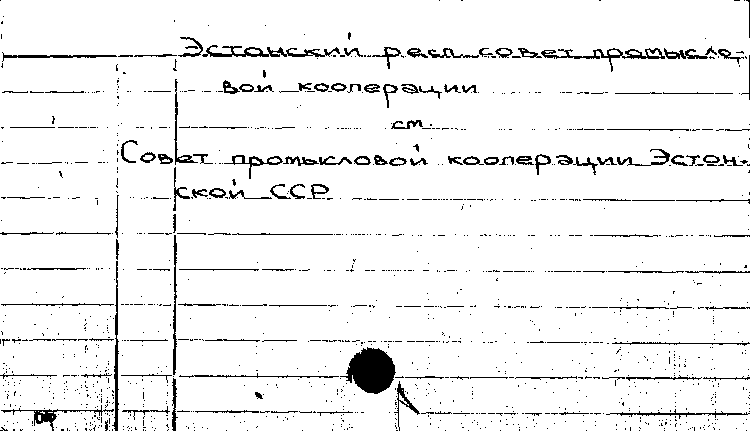 Эстонский респ. совет промысло-
вой кооперации
см.
Совет промысловой кооперации Эстон-
ской ССР